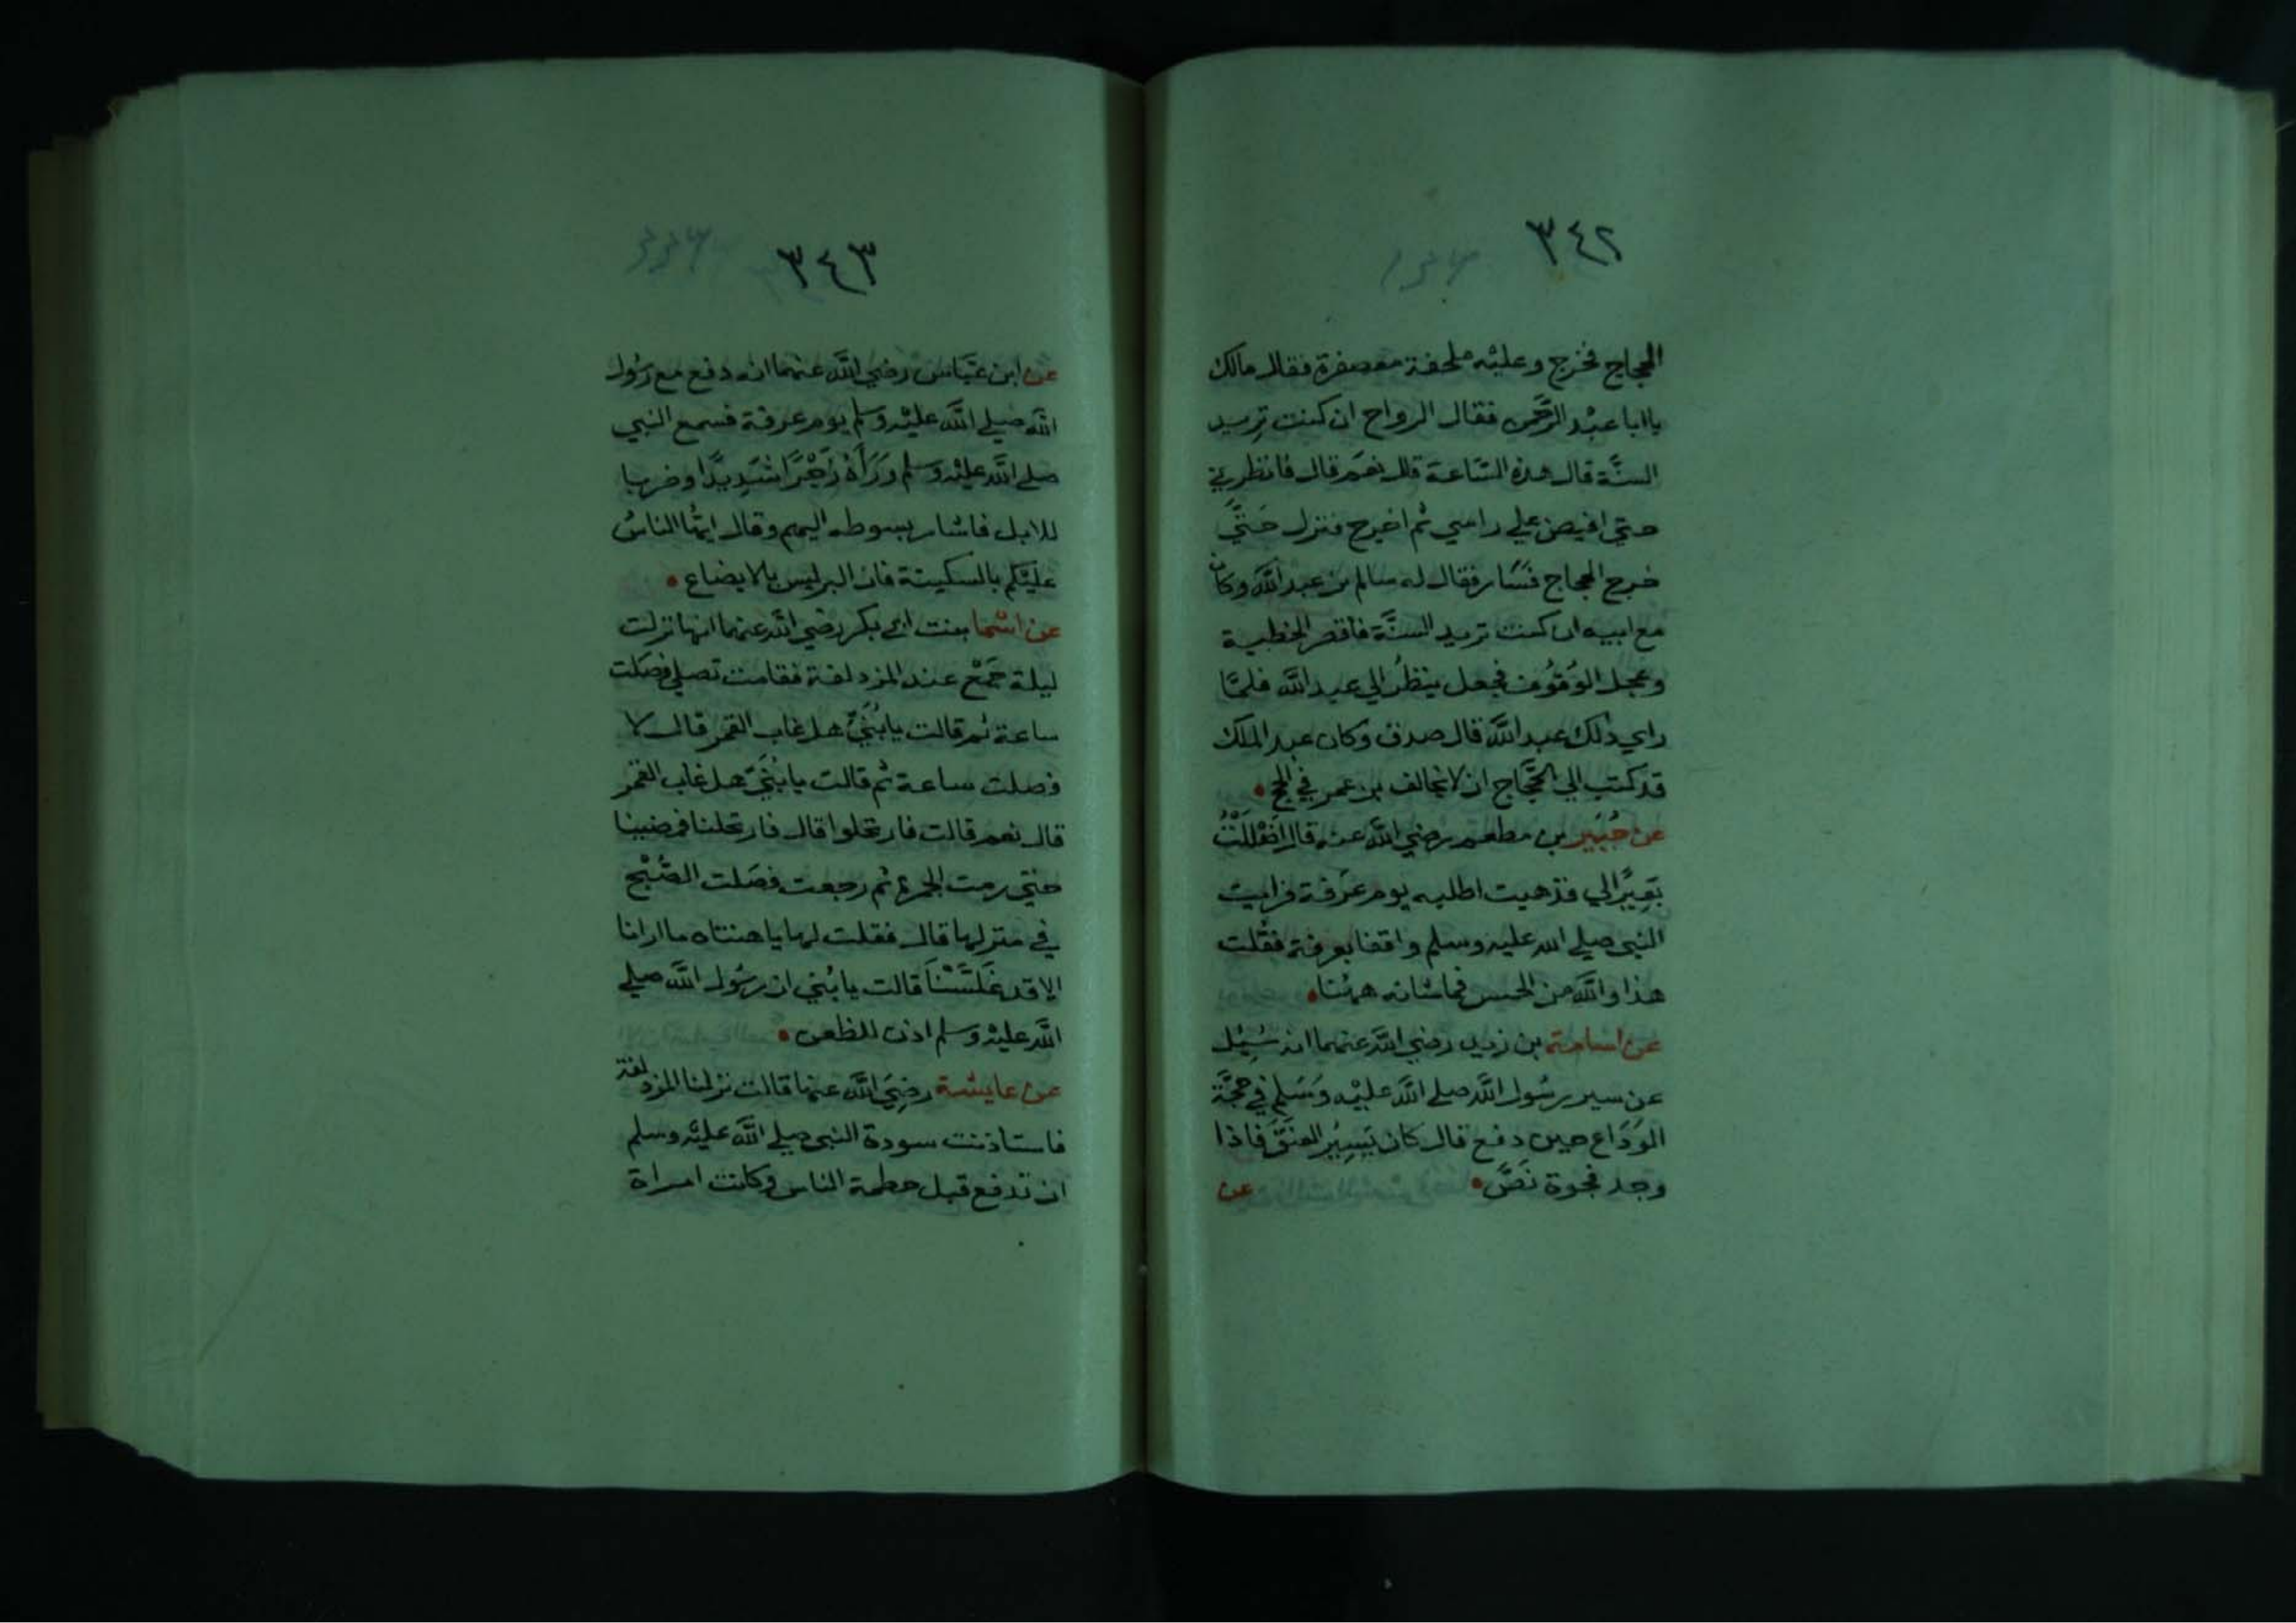 ٣٤٢
الحجاج فخرج وعليه ملحفة معصفرة فقال مالك
يا ابا عبد الرحمن فقال الرواح ان كنت تريد
السنة قال هذه الساعة قال نعم قال فانظرني
حتي افيض علي راسي ثم اخرج فنزل حتي
خرج الحجاج فسار فقال له سالم بن عبد الله وكان
مع ابيه ان كنت تريد السنة فاقصر الخطبة
وعجل الوقوف فجعل ينظر الي عبد الله فلما
راي ذلك عبد الله قال صدق وكان عبد الملك
قد كتب الي الحجاج ان لا يخالف بن عمر في الحج
عن جبير بن مطعم رضي الله عنه قال اضللت
بعيرا لي فذهبت اطلبه يوم عرفة فرايت
النبي صلي الله عليه وسلم واقفا بعرفة فقلت
هذا والله من الحمس فما شانه ههنا
عن اسامة بن زيد رضي الله عنهما انه سئل
عن سير رسول الله صلي الله عليه وسلم في حجة
الوداع حين دفع قال كان يسير العنق فاذا
وجد فجوة نص عن
٣٤٣
عن ابن عباس رضي الله عنهما انه دفع مع رسول
الله صلي الله عليه وسلم يوم عرفة فسمع النبي
صلي الله عليه وسلم وراه زجرا شديدا وضربا
للابل فاشار بسوطه اليهم وقال ايها الناس
عليكم بالسكينة فان البر ليس بالايضاع
عن اسما بنت ابي بكر رضي الله عنهما انها نزلت
ليلة جمع عند المزدلفة فقامت تصلي فصلت
ساعة ثم قالت يا بني هل غاب القمر قال لا
فصلت ساعة ثم قالت يا بني هل غاب القمر
قال نعم قالت فارتحلوا قال فارتحلنا فمضينا
حتي رمت الجمرة ثم رجعت فصلت الصبح
في منزلها قال فقلت لها يا هنتاه ما ارانا
الا قد غلسنا قالت يا بني ان رسول الله صلي
الله عليه وسلم اذن للظعن
عن عايشة رضي الله عنها قالت نزلنا المزدلفة
فاستاذنت سودة النبي صلي الله عليه وسلم
ان تدفع قبل حطمة الناس وكانت امراة